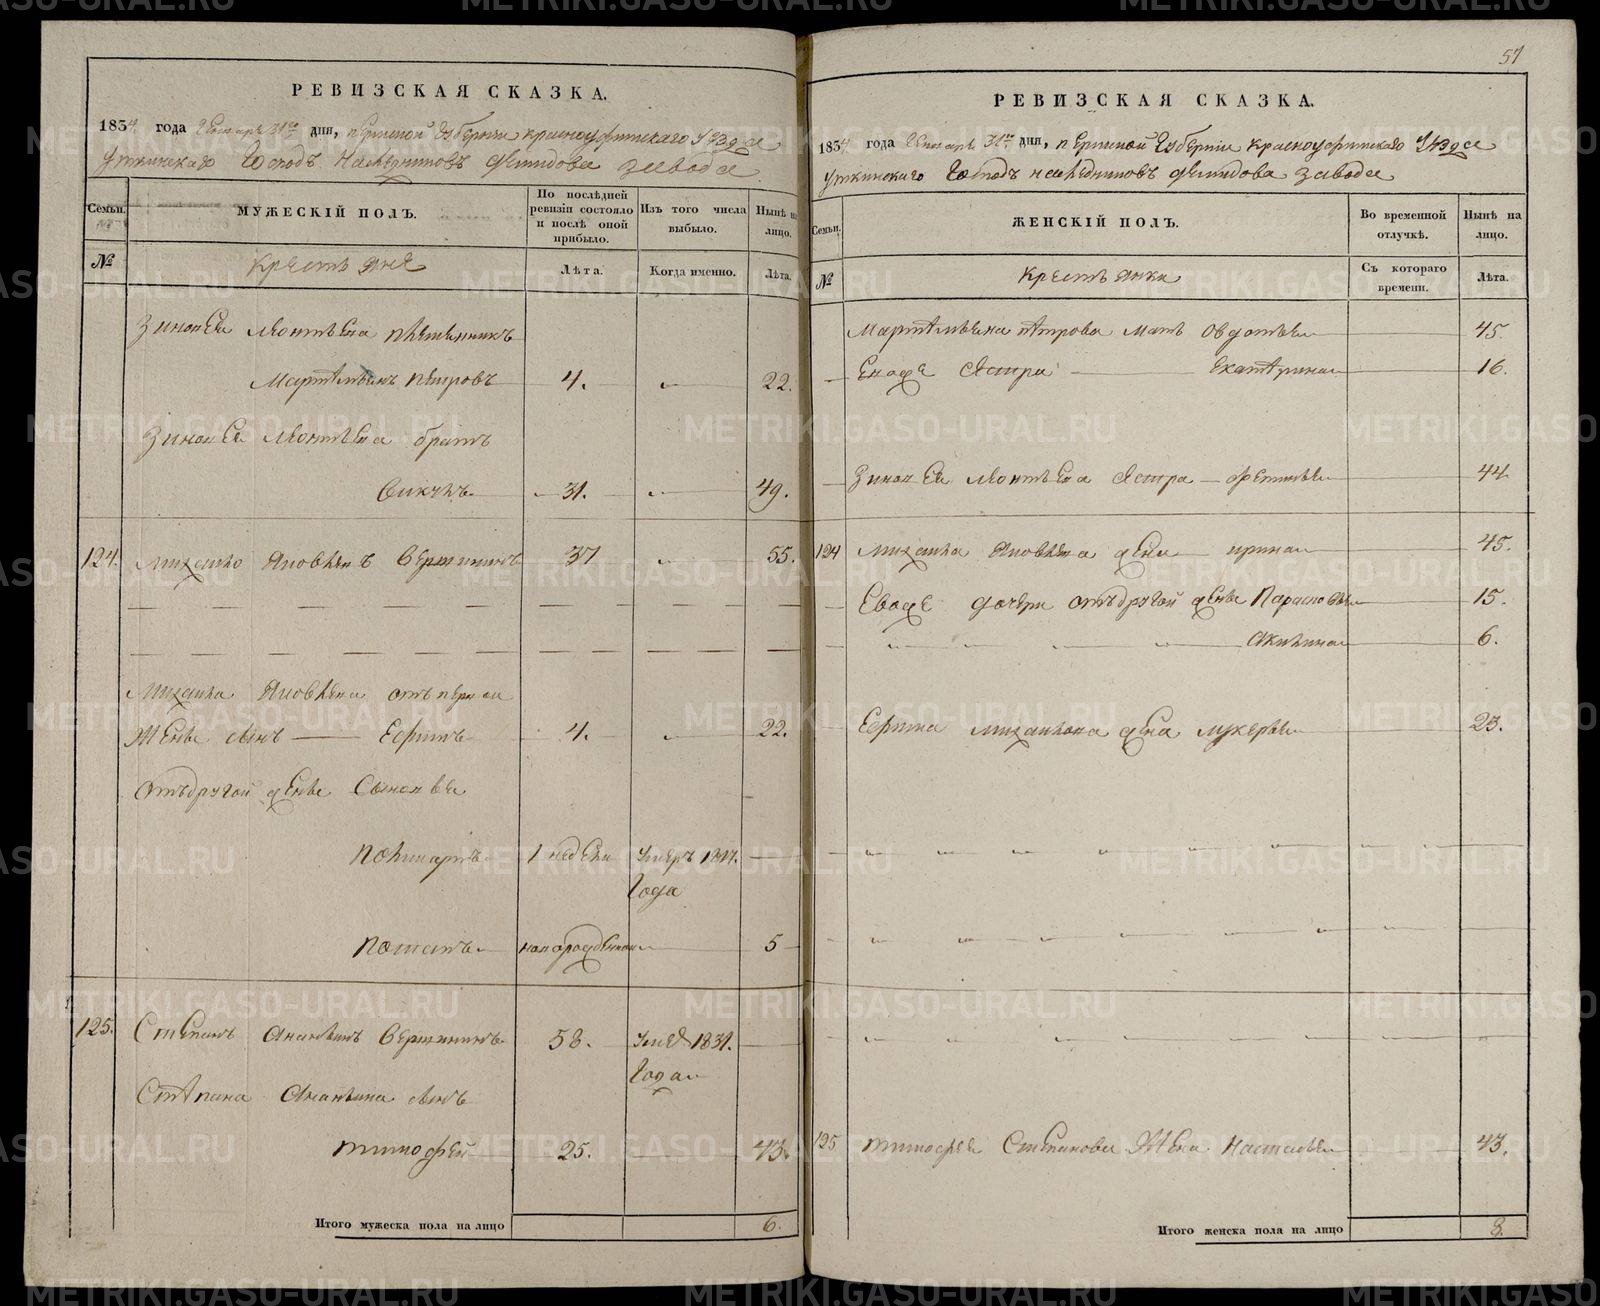 57
РЕВИЗСКАЯ СКАЗКА.
1834 года Генваря 31го дня, Пермской Губернии Красноуфимского Уезда
Уткинского Господъ Наследниковъ Демидова завода
Семьи. МУЖЕСКІЙ ПОЛЪ. По послѣдней ревизіи состояло и послѣ оной прибыло. Изъ того числа выбыло. Нынѣ на лицо.
№ Крестьяне Лѣта. Когда именно. Лѣта.
Зиновея Леонтьева племянникъ
Мартемьянъ Петровъ 4. 22.
Зиновея Леонтьева братъ
31. 49.
124. Михайло Яковлевъ Вершининъ 37 55.
Михаила Яковлева отъ первой
Жены сынъ Ефимъ 4. 22.
Отъ другой жены Сыновья
1 недели Умеръ 1817.
Года
новорожденной 5
125. Степанъ Ананьинъ Вершининъ 58. Умре 1831.
Года
Степана Ананьина сынъ
Тимофей 25. 43.
Итого мужеска пола на лицо 6.
РЕВИЗСКАЯ СКАЗКА.
1834 года Генваря 31го дня, Пермской Губернии Красноуфимского Уезда
Уткинского Господъ Наследниковъ Демидова завода
Семьи. ЖЕНСКІЙ ПОЛЪ. Во временной отлучкѣ. Нынѣ на лицо.
№ Крестьянки Съ котораго времени. Лѣта.
Мартемьяна Петрова мать Овдотья 45.
Ево же Сестра Екатерина 16.
Зиновея Леонтьева Сестра Фетинья 44
124 Михаила Яковлева жена Ирина 45.
Ево же дочери отъ другой жены Парасковья 15.
Акилина 6.
Ефима Михайлова жена Лукерья 23.
125 Тимофея Степанова Жена Настасья 43.
Итого женска пола на лицо 8.
METRIKI.GASO-URAL.RU